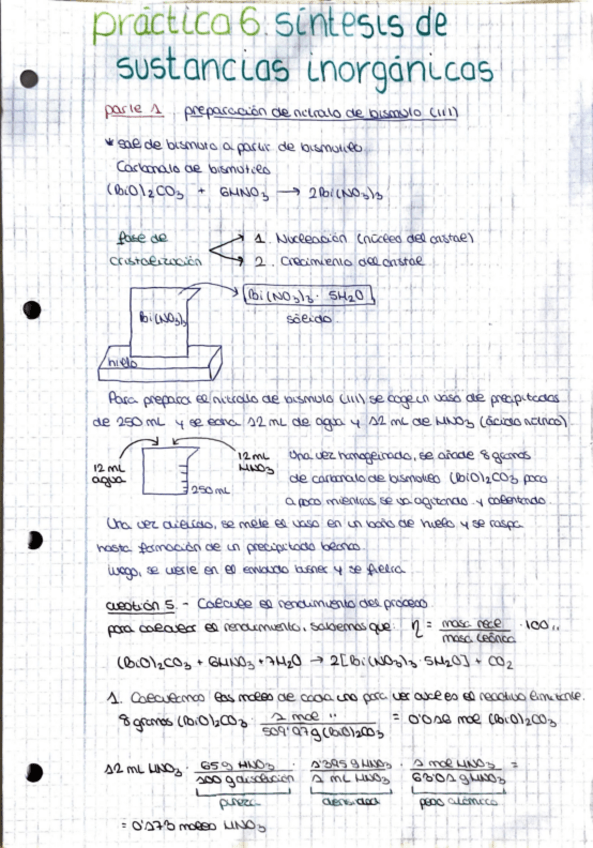 práctica 6: síntesis de
sustancias inorgánicas
parte 1 preparación de nitrato de bismuto (III)
* sal de bismuto a partir de bismutilo.
Carbonato de bismutilo
(BiO)2CO3 + 6HNO3 → 2Bi(NO3)3
fase de
cristalización
1. Nucleación (núcleo del cristal)
2. Crecimiento del cristal
Bi(NO3)3
hielo
Bi(NO3)3 · 5H2O
sólido
Para preparar el nitrato de bismuto (III) se coge un vaso de precipitados
de 250 mL y se echa 12 mL de agua y 12 mL de HNO3 (ácido nítrico)
12 mL
agua
12 mL
HNO3
250 mL
Una vez homogeinado, se añade 8 gramos
de carbonato de bismutilo (BiO)2CO3 poco
a poco mientras se va agitando y calentando.
Una vez diluido, se mete el vaso en un baño de hielo y se raspa
hasta formación de un precipitado blanco.
Luego, se vierte en el embudo busner y se filtra.
cuestión 5.- Calcule el rendimiento del proceso.
para calcular el rendimiento, sabemos que: η = masa real / masa teórica · 100
(BiO)2CO3 + 6HNO3 + 7H2O → 2[Bi(NO3)3 · 5H2O] + CO2
1. Calculamos las moles de cada uno para ver cual es el reactivo limitante.
8 gramos (BiO)2CO3 · 1 mol " / 509'97g (BiO)2CO3 = 0'016 mol (BiO)2CO3
12 mL HNO3 · 65g HNO3 / 100 g disolución · 1'395 g HNO3 / 1 mL HNO3 · 1 mol HNO3 / 63'01 g HNO3 =
pureza densidad peso atómico
= 0'173 moles HNO3